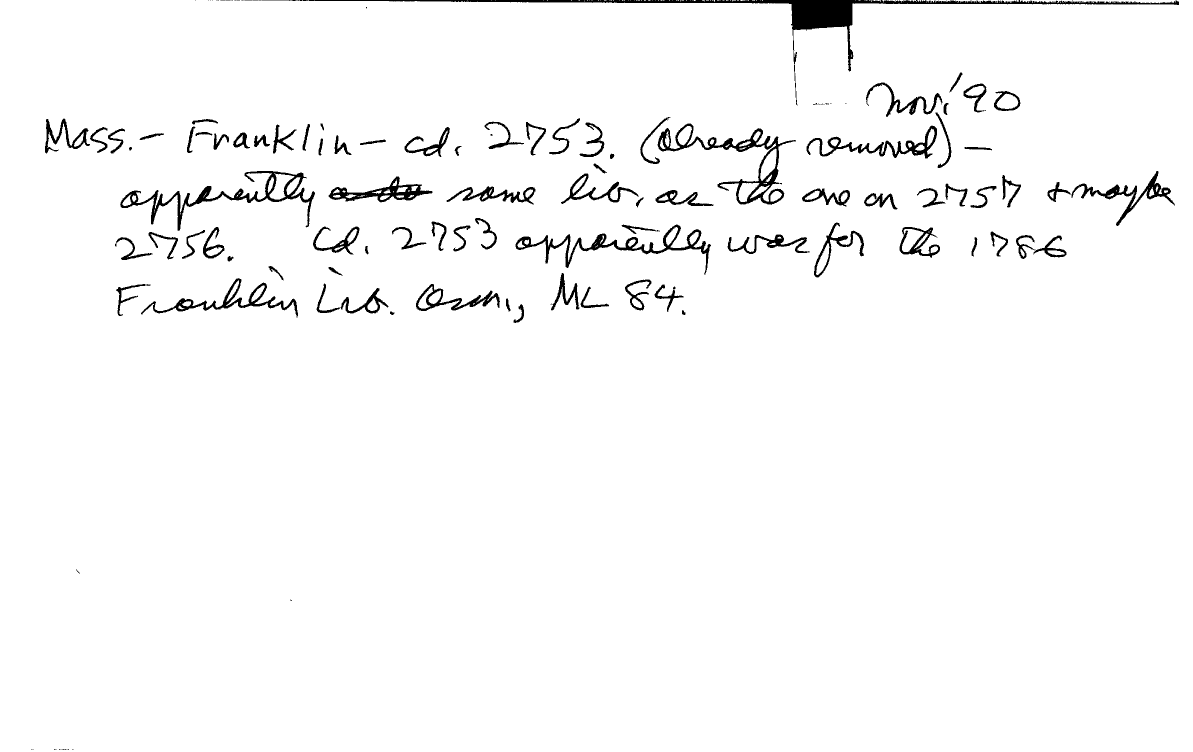 Nov. '90
Mass. - Franklin - cd. 2753. (already removed) -
apparently same lib. as the one on 2757 + maybe
2756. Cd. 2753 apparently was for the 1786
Franklin Lib. Assn., ML 84.